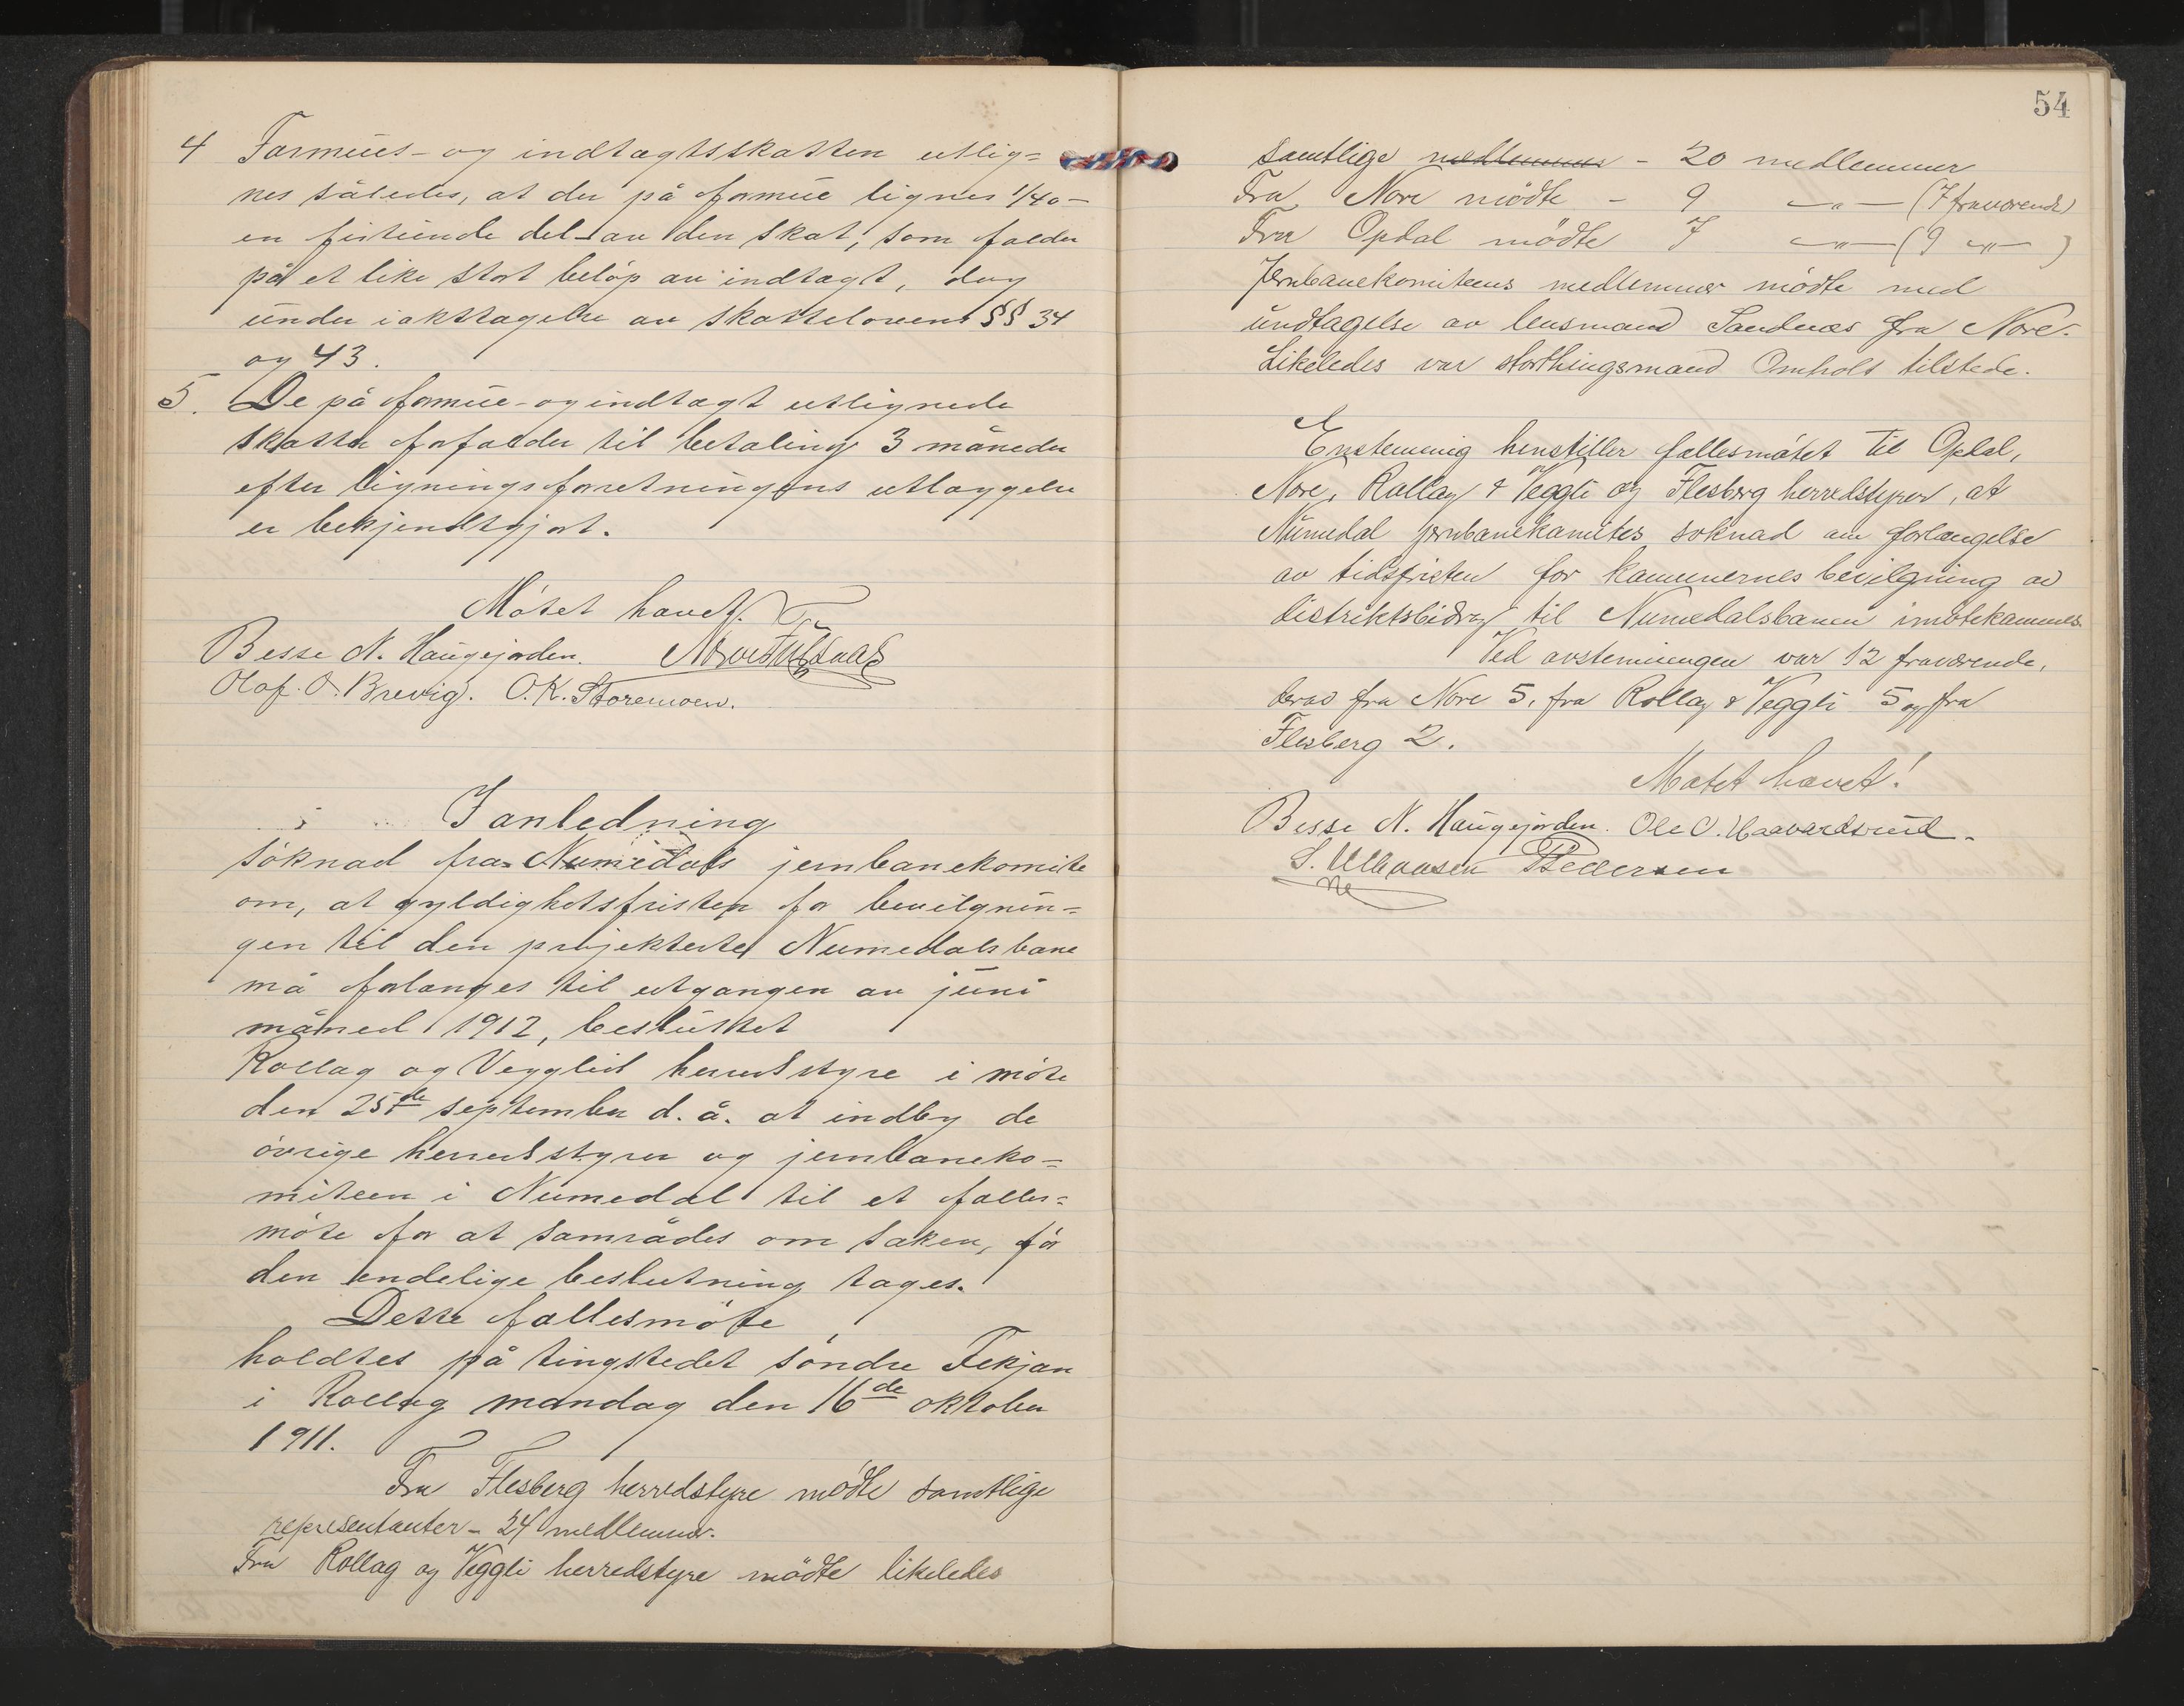 4 Formues- og indtægtsskatten utlig=
nes således, at der på formue lignes 1/40 -
en firtiende del - av den skat, som falder
på et like stort beløp av indtægt, dog
under iakttagelse av skattelovens §§ 34
og 43.
5. De på formue- og indtægt utlignede
skatter forfalder til betaling 3 måneder
efter ligningsforretningens utlæggelse
er bekjendtgjort.
Møtet hævet.
Besse N. Haugejorden.
Olaf. O. Brevig. O. K. Storemoen.
I anledning
søknad fra Numedals jernbanekomite
om, at gyldighetsfristen for bevilgnin=
gen til den projekterte Numedalsbane
må forlænges til utgangen av juni
måned 1912, besluttet
Rollag og Vegglid herredsstyre i møte
den 25de september d. å. at indby de
øvrige herredsstyrer og jernbaneko=
miteen i Numedal til et fælles=
møte for at samrådes om saken, før
den endelige beslutning tages.
Dette fællesmøte
holdtes på tingstedet søndre Fekjan
i Rollag mandag den 16de oktober
1911.
Fra Flesberg herredstyre mødte samtlige
representanter - 24 medlemmer.
Fra Rollag og Veggli herredstyre mødte likeledes
54
samtlige medlemmer - 20 medlemmer
Fra Nore mødte - 9 —„— (7 fraværende)
Fra Opdal mødte 7 —„— (9 —„— )
Jernbanekomiteens medlemmer mødte med
undtagelse av lensmand Sandnes fra Nore.
Likeledes var storthingsmand Omholt tilstede.
Enstemmig henstiller fællesmøtet til Opdal,
Nore, Rollag & Veggli og Flesberg herredstyrer, at
Numedal jernbanekomites søknad om forlængelse
av tidsfristen for kommunernes bevilgning av
distriktsbidrag til Numedalsbanen imøtekommes.
Ved avstemningen var 12 fraværende,
derav fra Nore 5, fra Rollag & Veggli 5 og fra
Flesberg 2.
Møtet hævet!
Besse N. Haugejorden. Ole O. Haavardsrud.
Pedersen